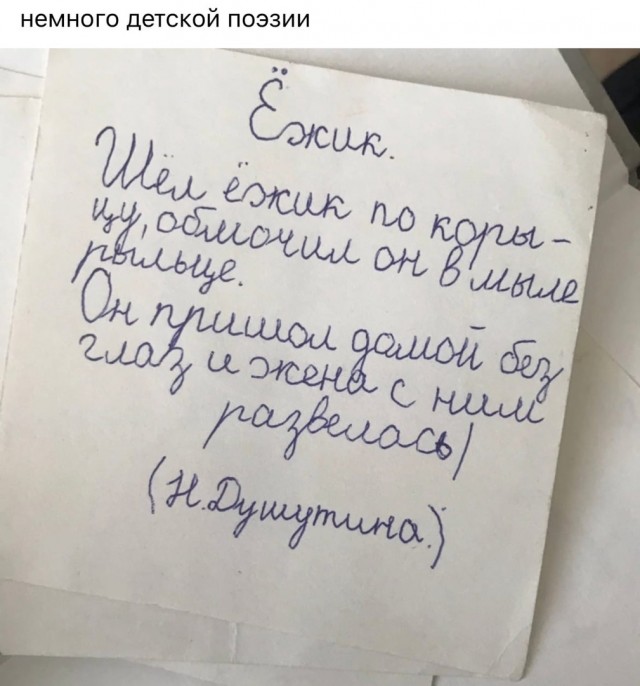 немного детской поэзии
Ёжик.
Шёл ёжик по коры-
цу, обмочил он в мыле
рыльце.
Он пришол домой без
глаз и жена с ним
развелась)
(Н. Душутина.)